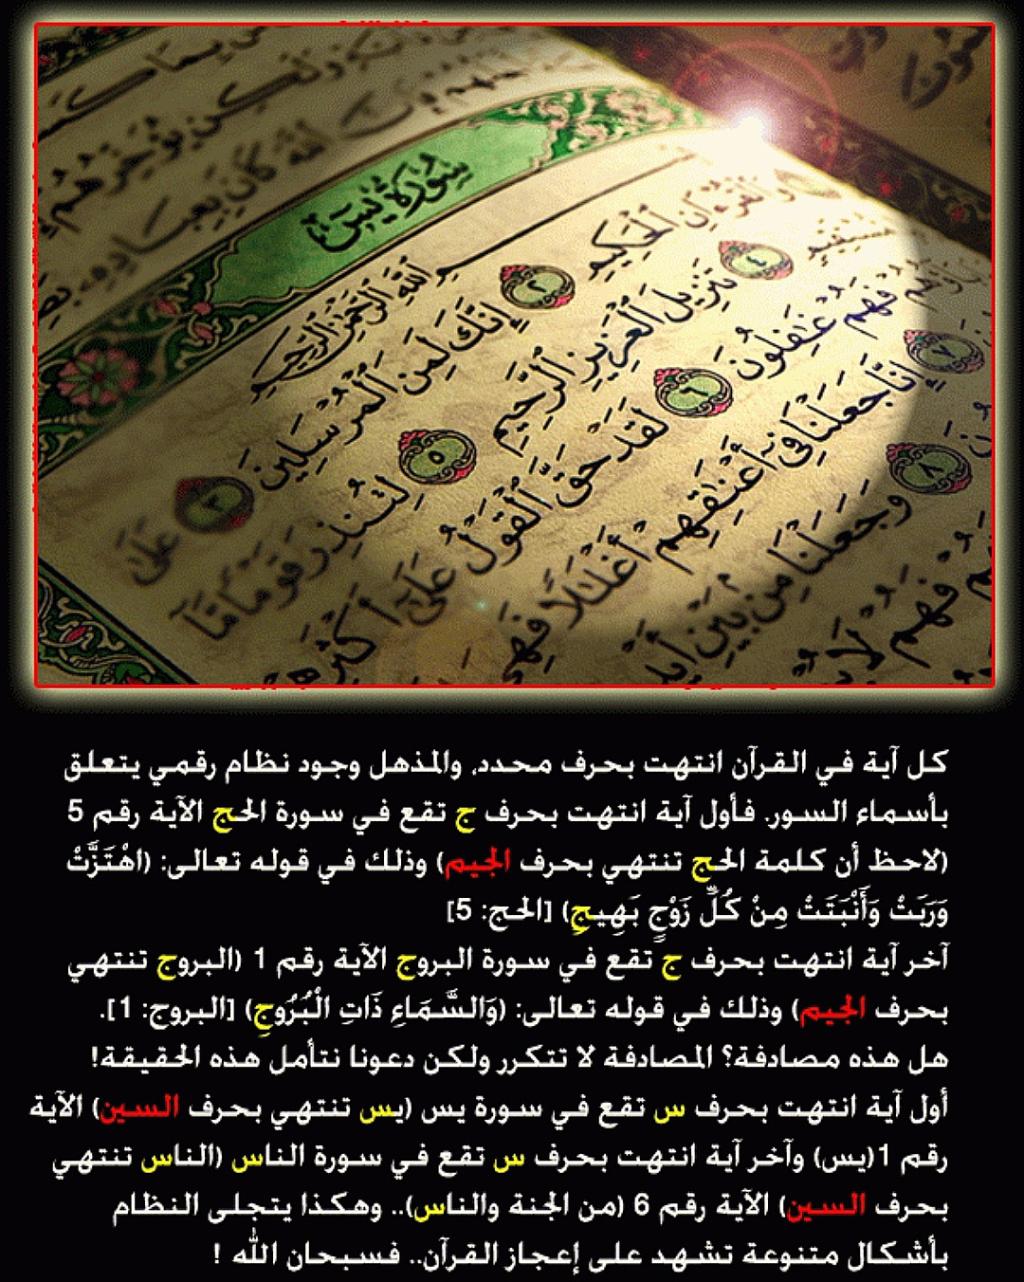 سورة يس
الله الرحمن الرحيم
والقرءان الحكيم ٢ إنك لمن المرسلين ٣ على
مستقيم ٤ تنزيل العزيز الرحيم ٥ لتنذر قوما ما
فهم غفلون ٦ لقد حق القول على أكثرهم
٧ إنا جعلنا في أعنقهم أغللا فهي
٨ وجعلنا من بين
كل آية في القرآن انتهت بحرف محدد، والمذهل وجود نظام رقمي يتعلق
بأسماء السور. فأول آية انتهت بحرف ج تقع في سورة الحج الآية رقم 5
(لاحظ أن كلمة الحج تنتهي بحرف الجيم) وذلك في قوله تعالى: (اهْتَزَّتْ
وَرَبَتْ وَأَنْبَتَتْ مِنْ كُلِّ زَوْجٍ بَهِيجٍ) [الحج: 5]
آخر آية انتهت بحرف ج تقع في سورة البروج الآية رقم 1 (البروج تنتهي
بحرف الجيم) وذلك في قوله تعالى: (وَالسَّمَاءِ ذَاتِ الْبُرُوجِ) [البروج: 1].
هل هذه مصادفة؟ المصادفة لا تتكرر ولكن دعونا نتأمل هذه الحقيقة!
أول آية انتهت بحرف س تقع في سورة يس (يس تنتهي بحرف السين) الآية
رقم 1(يس) وآخر آية انتهت بحرف س تقع في سورة الناس (الناس تنتهي
بحرف السين) الآية رقم 6 (من الجنة والناس).. وهكذا يتجلى النظام
بأشكال متنوعة تشهد على إعجاز القرآن.. فسبحان الله !